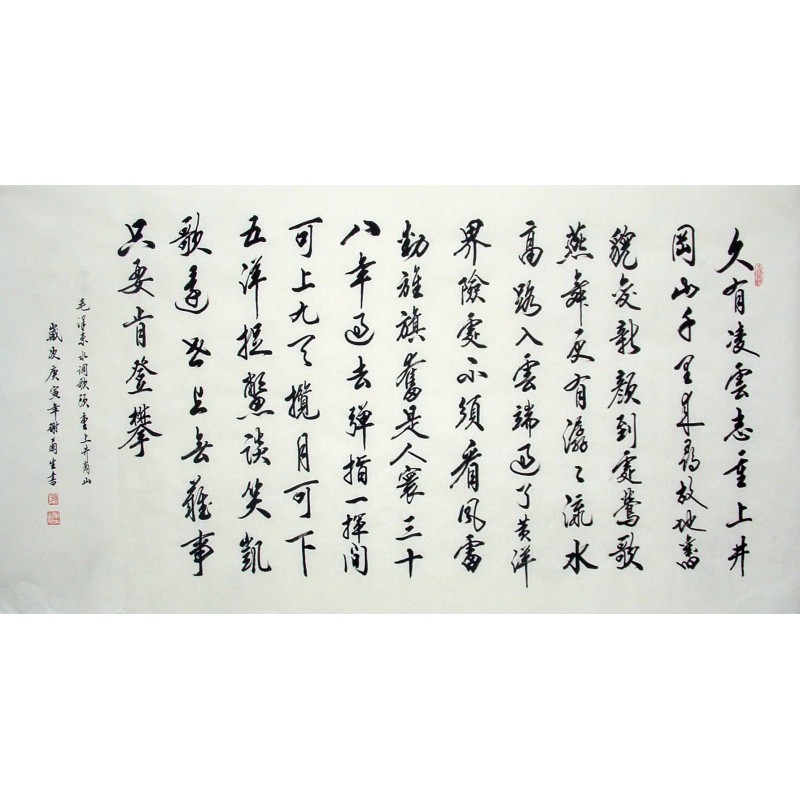 久有凌雲志重上井
岡山千里来尋故地舊
貌變新顔到處鶯歌
燕舞更有潺々流水
高路入雲端過了黄洋
界險處不須看風雷
動旌旗奮是人寰三十
八年過去彈指一揮間
可上九天攬月可下
五洋捉鱉談笑凱
歌還世上無難事
只要肯登攀
毛泽東水调歌頭重上井岡山
歲次庚寅年謝生書